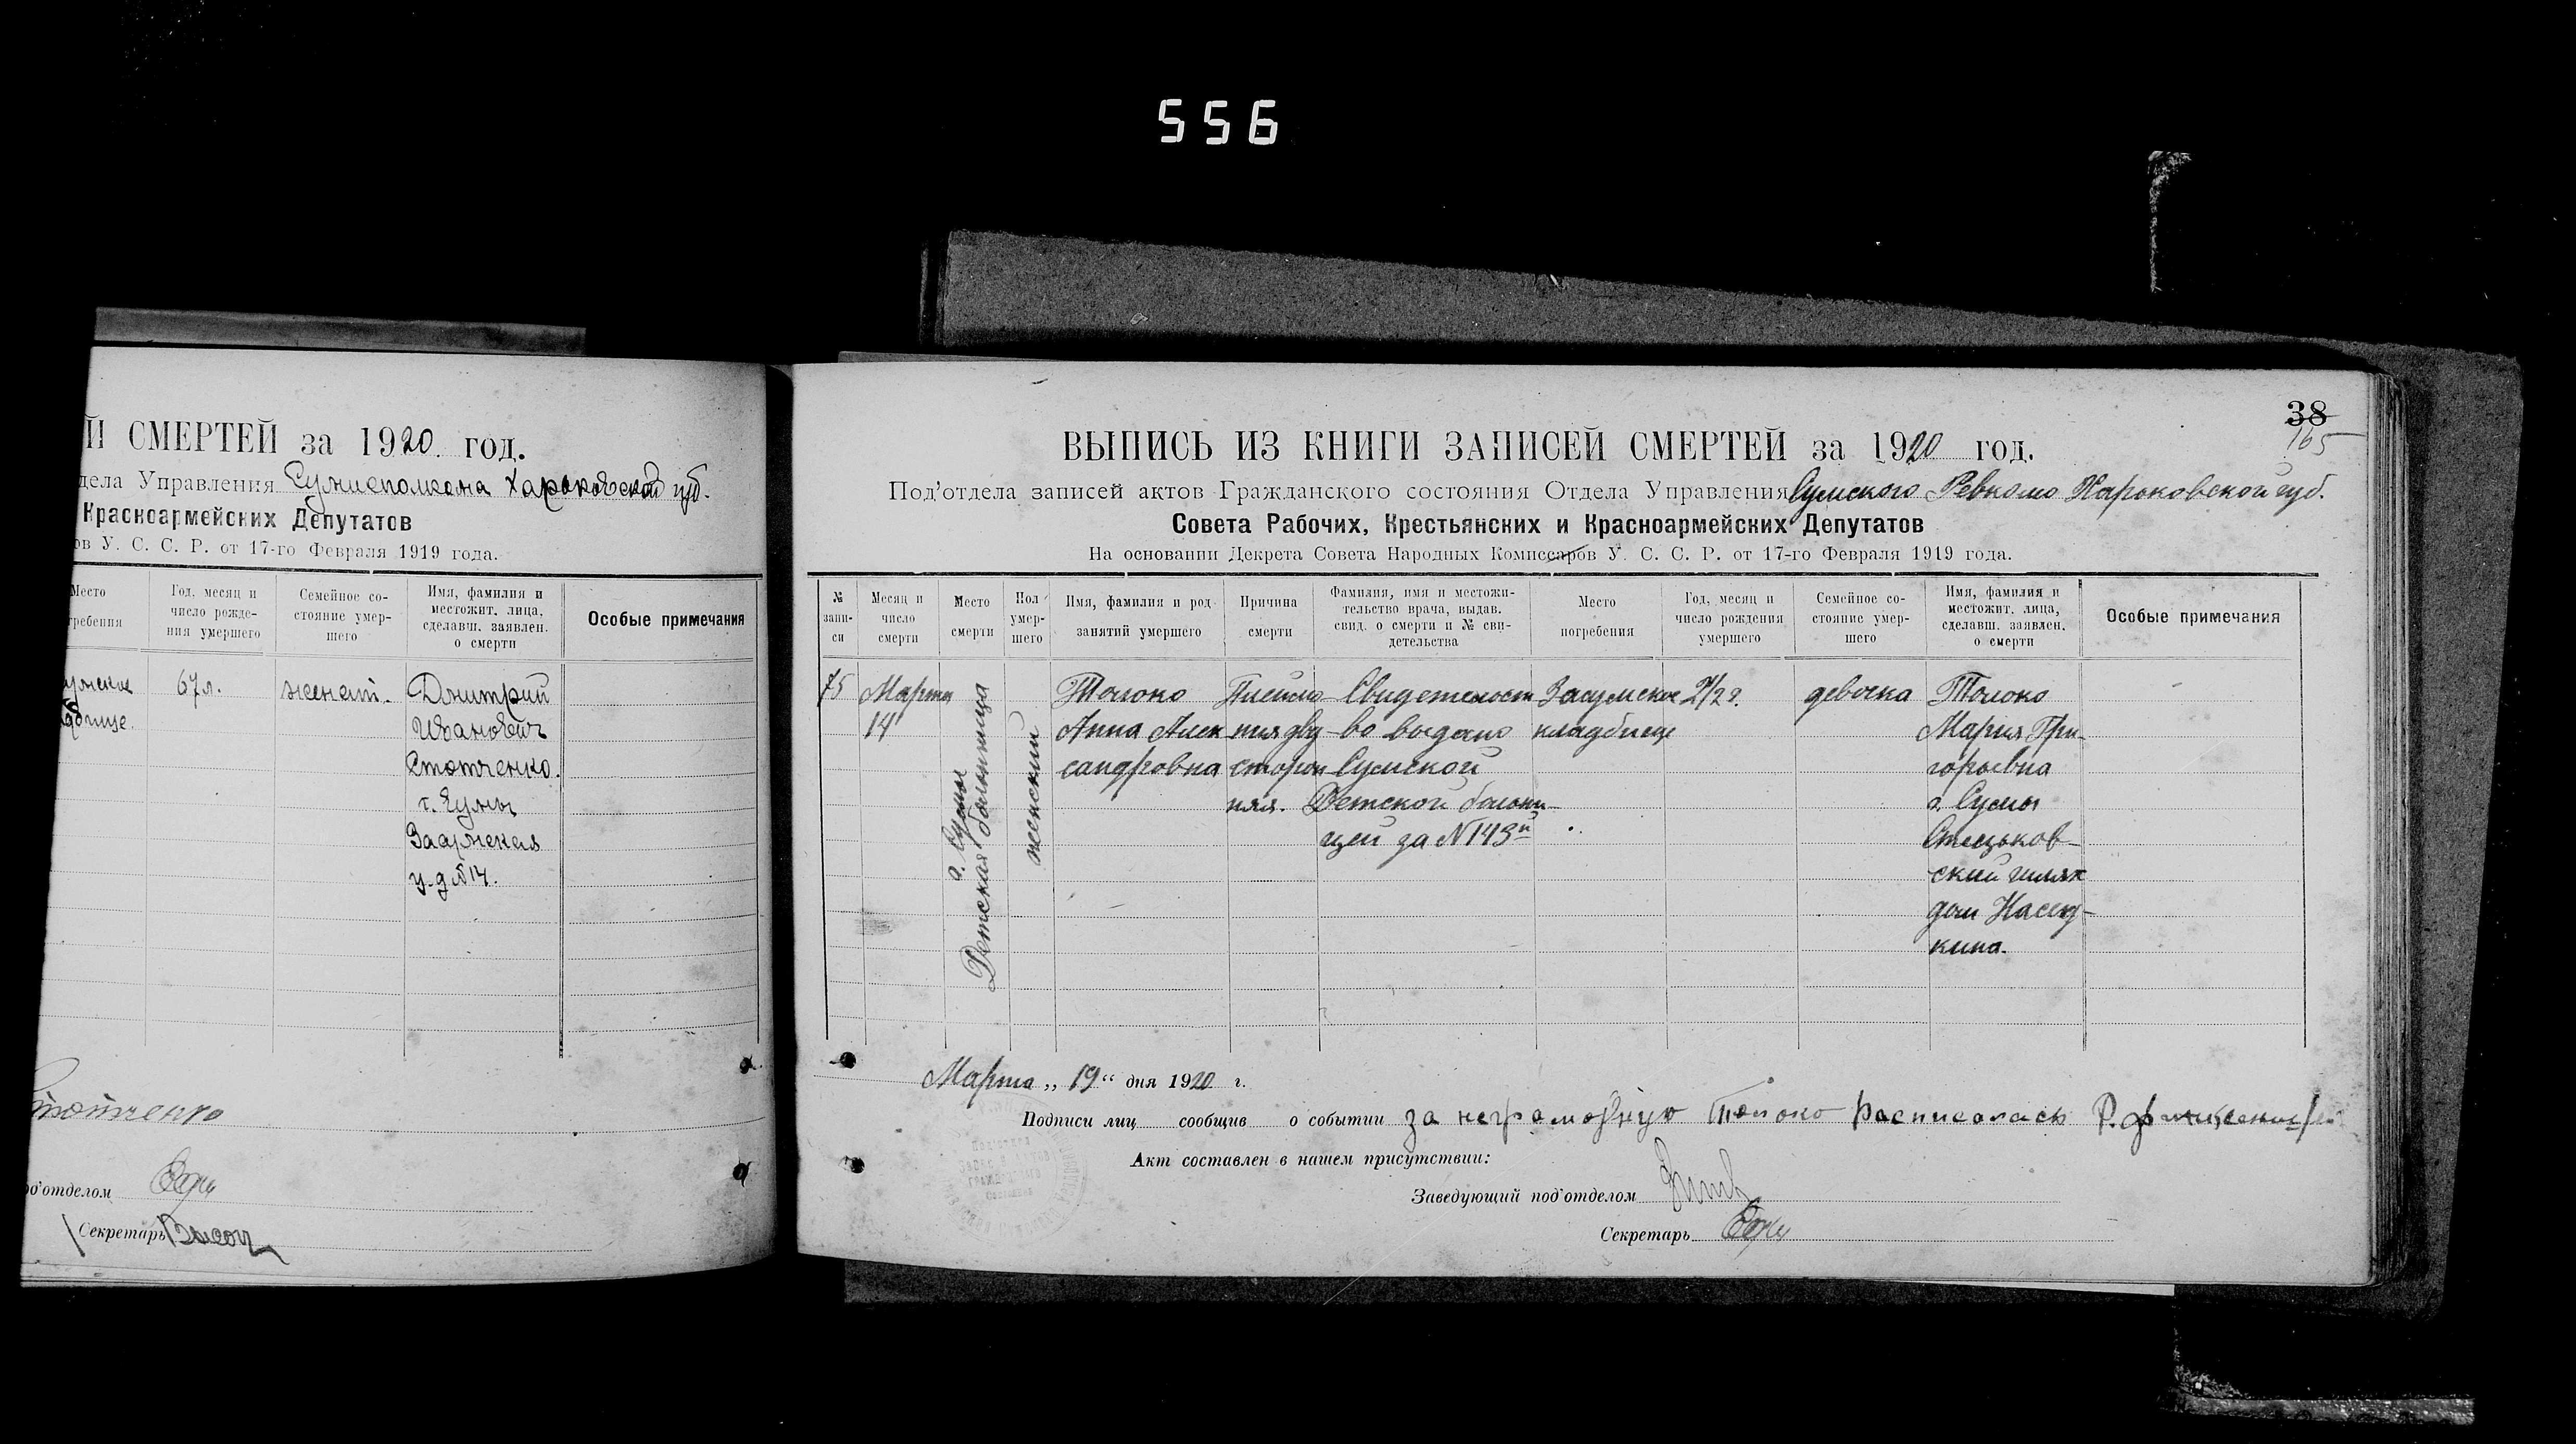 556
Й СМЕРТЕЙ за 1920 год.
дела Управления Сумисполкома Харьковской губ.
Красноармейских Депутатов
ов У. С. С. Р. от 17-го Февраля 1919 года.
Место
гребения
Год, месяц и
число рожде-
ния умершего
Семейное со-
стояние умер-
шего
Имя, фамилия и
местожит. лица,
сделавш. заявлен.
о смерти
Особые примечания
67 л.
женат.
Дмитрий
Иванович
Стотченко.
г. Сумы
Засумская
у. д №14.
Стотченко
под'отделом
Секретарь
38
165
ВЫПИСЬ ИЗ КНИГИ ЗАПИСЕЙ СМЕРТЕЙ за 1920 год.
Под'отдела записей актов Гражданского состояния Отдела Управления Сумского Ревкома Харьковской губ.
Совета Рабочих, Крестьянских и Красноармейских Депутатов
На основании Декрета Совета Народных Комиссаров У. С. С. Р. от 17-го Февраля 1919 года.
№
запи-
си
Месяц и
число
смерти
Место
смерти
Пол
умер-
шего
Имя, фамилия и род
занятий умершего
Причина
смерти
Фамилия, имя и местожи-
тельство врача, выдав.
свид. о смерти и № сви-
детельства
Место
погребения
Год, месяц и
число рождения
умершего
Семейное со-
стояние умер-
шего
Имя, фамилия и
местожит. лица,
сделавш. заявлен.
о смерти
Особые примечания
75
Марта
14
г. Сумы
Детская больница
женский
Толоко
Анна Алек
сандровна
Плеймо
ния дву
сторон
няя.
Свидетельст
во выдано
Сумской
Детской больни-
цей за №143й
Засумское
кладбище
2 1/2 г.
девочка
Толоко
Мария Гри-
горьевна
г. Сумы
Стецьков-
ский шлях
дом Насед-
кина.
Марта „ 19 “ дня 1920 г.
Подписи лиц сообщив о событии за неграмотную Толоко расписалась
Акт составлен в нашем присутствии:
Заведующий под'отделом
Секретарь